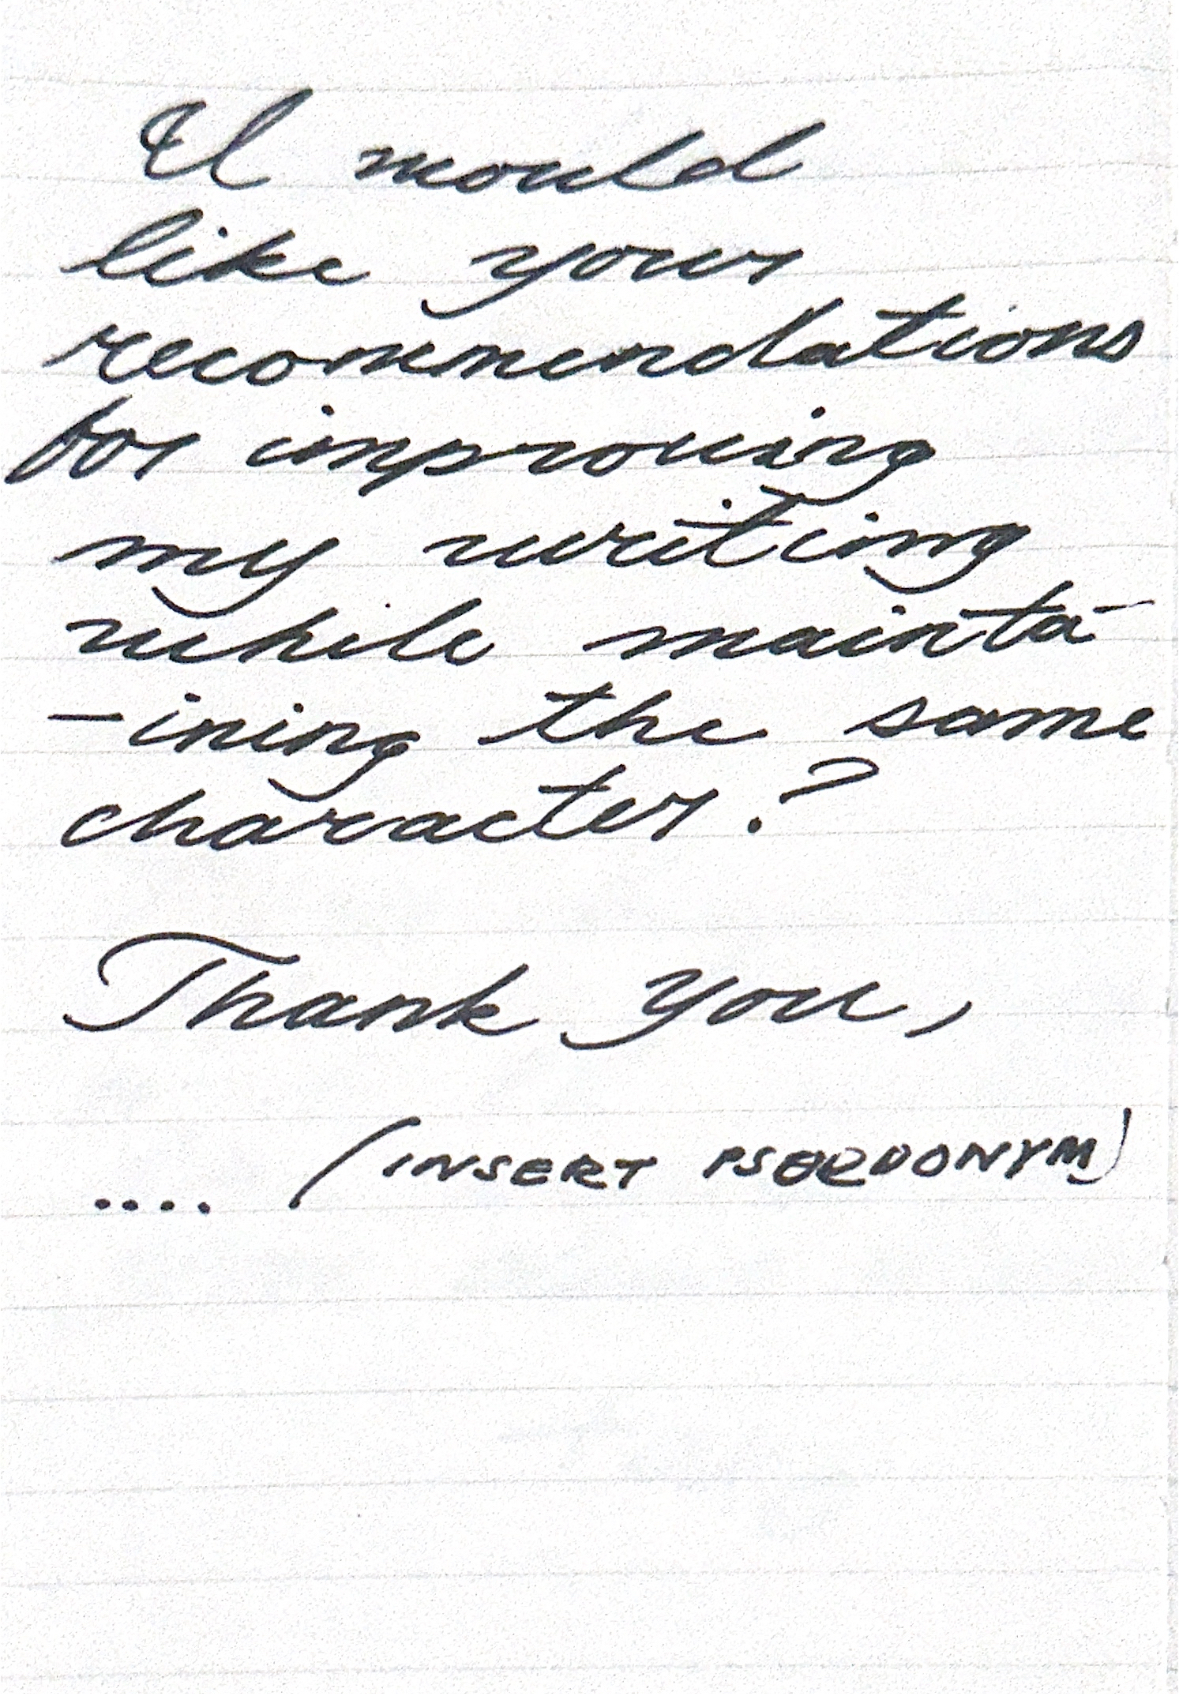 I would
like your
recommendations
for improving
my writing
while mainta
-ining the same
character?
Thank you,
.... (INSERT PSEUDONYM)